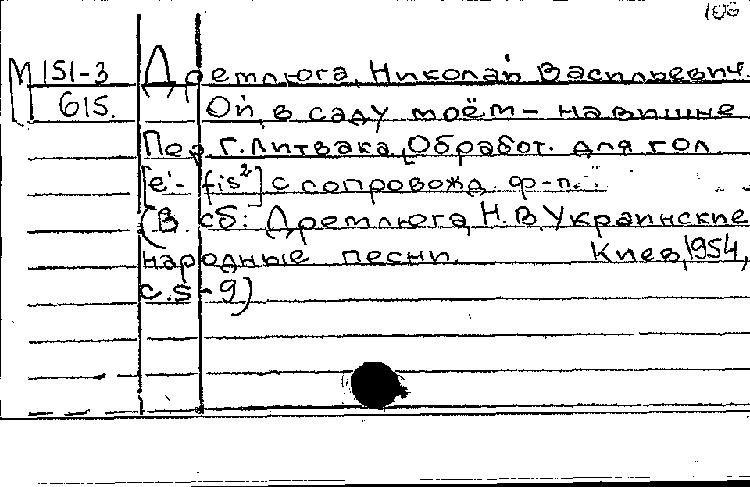 106
М 151-3 Дремлюга, Николай Васильевич.
615. Ой, в саду моём - на вишне
Пер. Г. Литвака, Обработ. для гол.
[e'- fis²] с сопровожд. ф-п.
(В сб: Дремлюга, Н.В. Украинские
народные песни. Киев, 1954,
с.8-9)